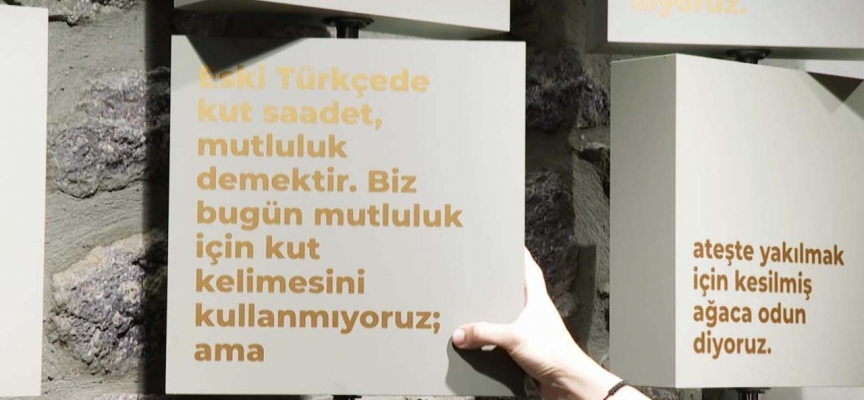 Eski Türkçede
kut saadet,
mutluluk
demektir. Biz
bugün mutluluk
için kut
kelimesini
kullanmıyoruz;
ama
diyoruz.
ateşte yakılmak
için kesilmiş
ağaca odun
diyoruz.